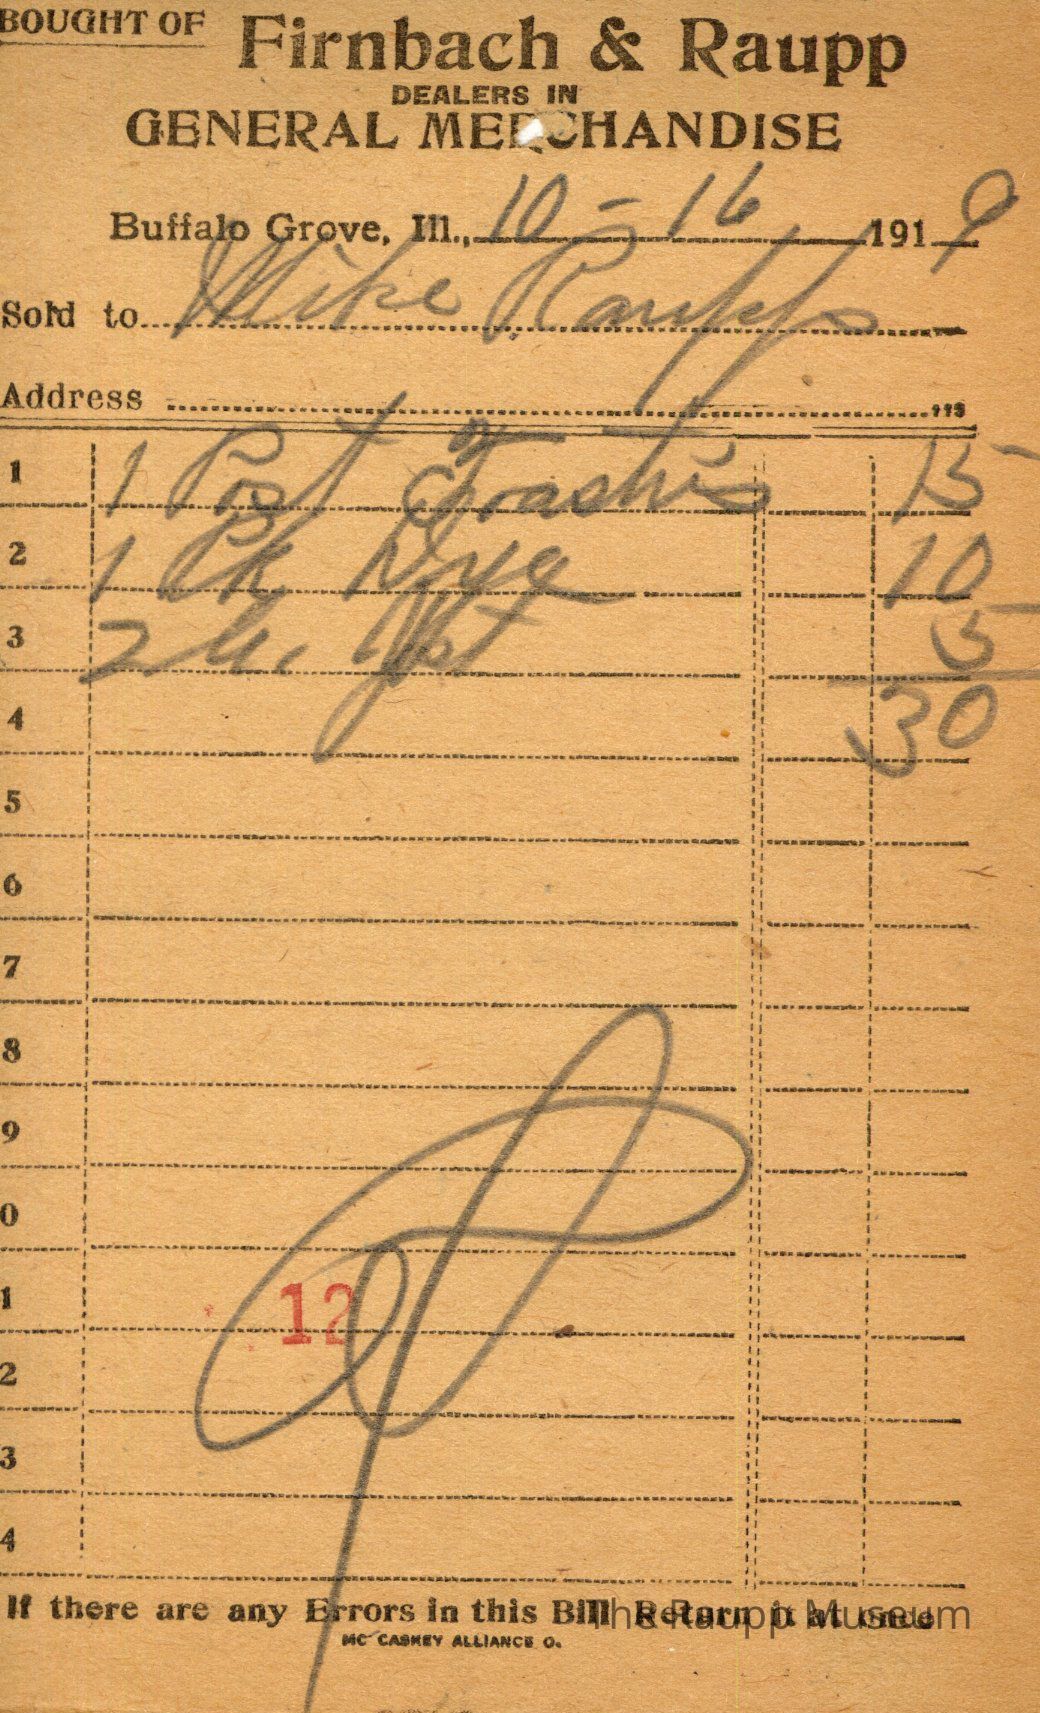 BOUGHT OF Firnbach & Raupp
DEALERS IN
GENERAL MERCHANDISE
Buffalo Grove, Ill., 10 - 16 1919
Sold to Mike Raupp
Address
1 1 Post 15
2 1 Pk Dye 10
3 2 5
4 30
5
6
7
8
9
0
1 12
2
3
4
If there are any Errors in this Bill Return it at once
The Raupp Museum
MC CASKEY ALLIANCE O.